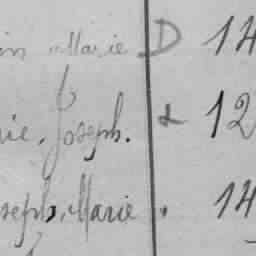 in Marie D 14
rie, Joseph. & 12
seph, Marie . 14